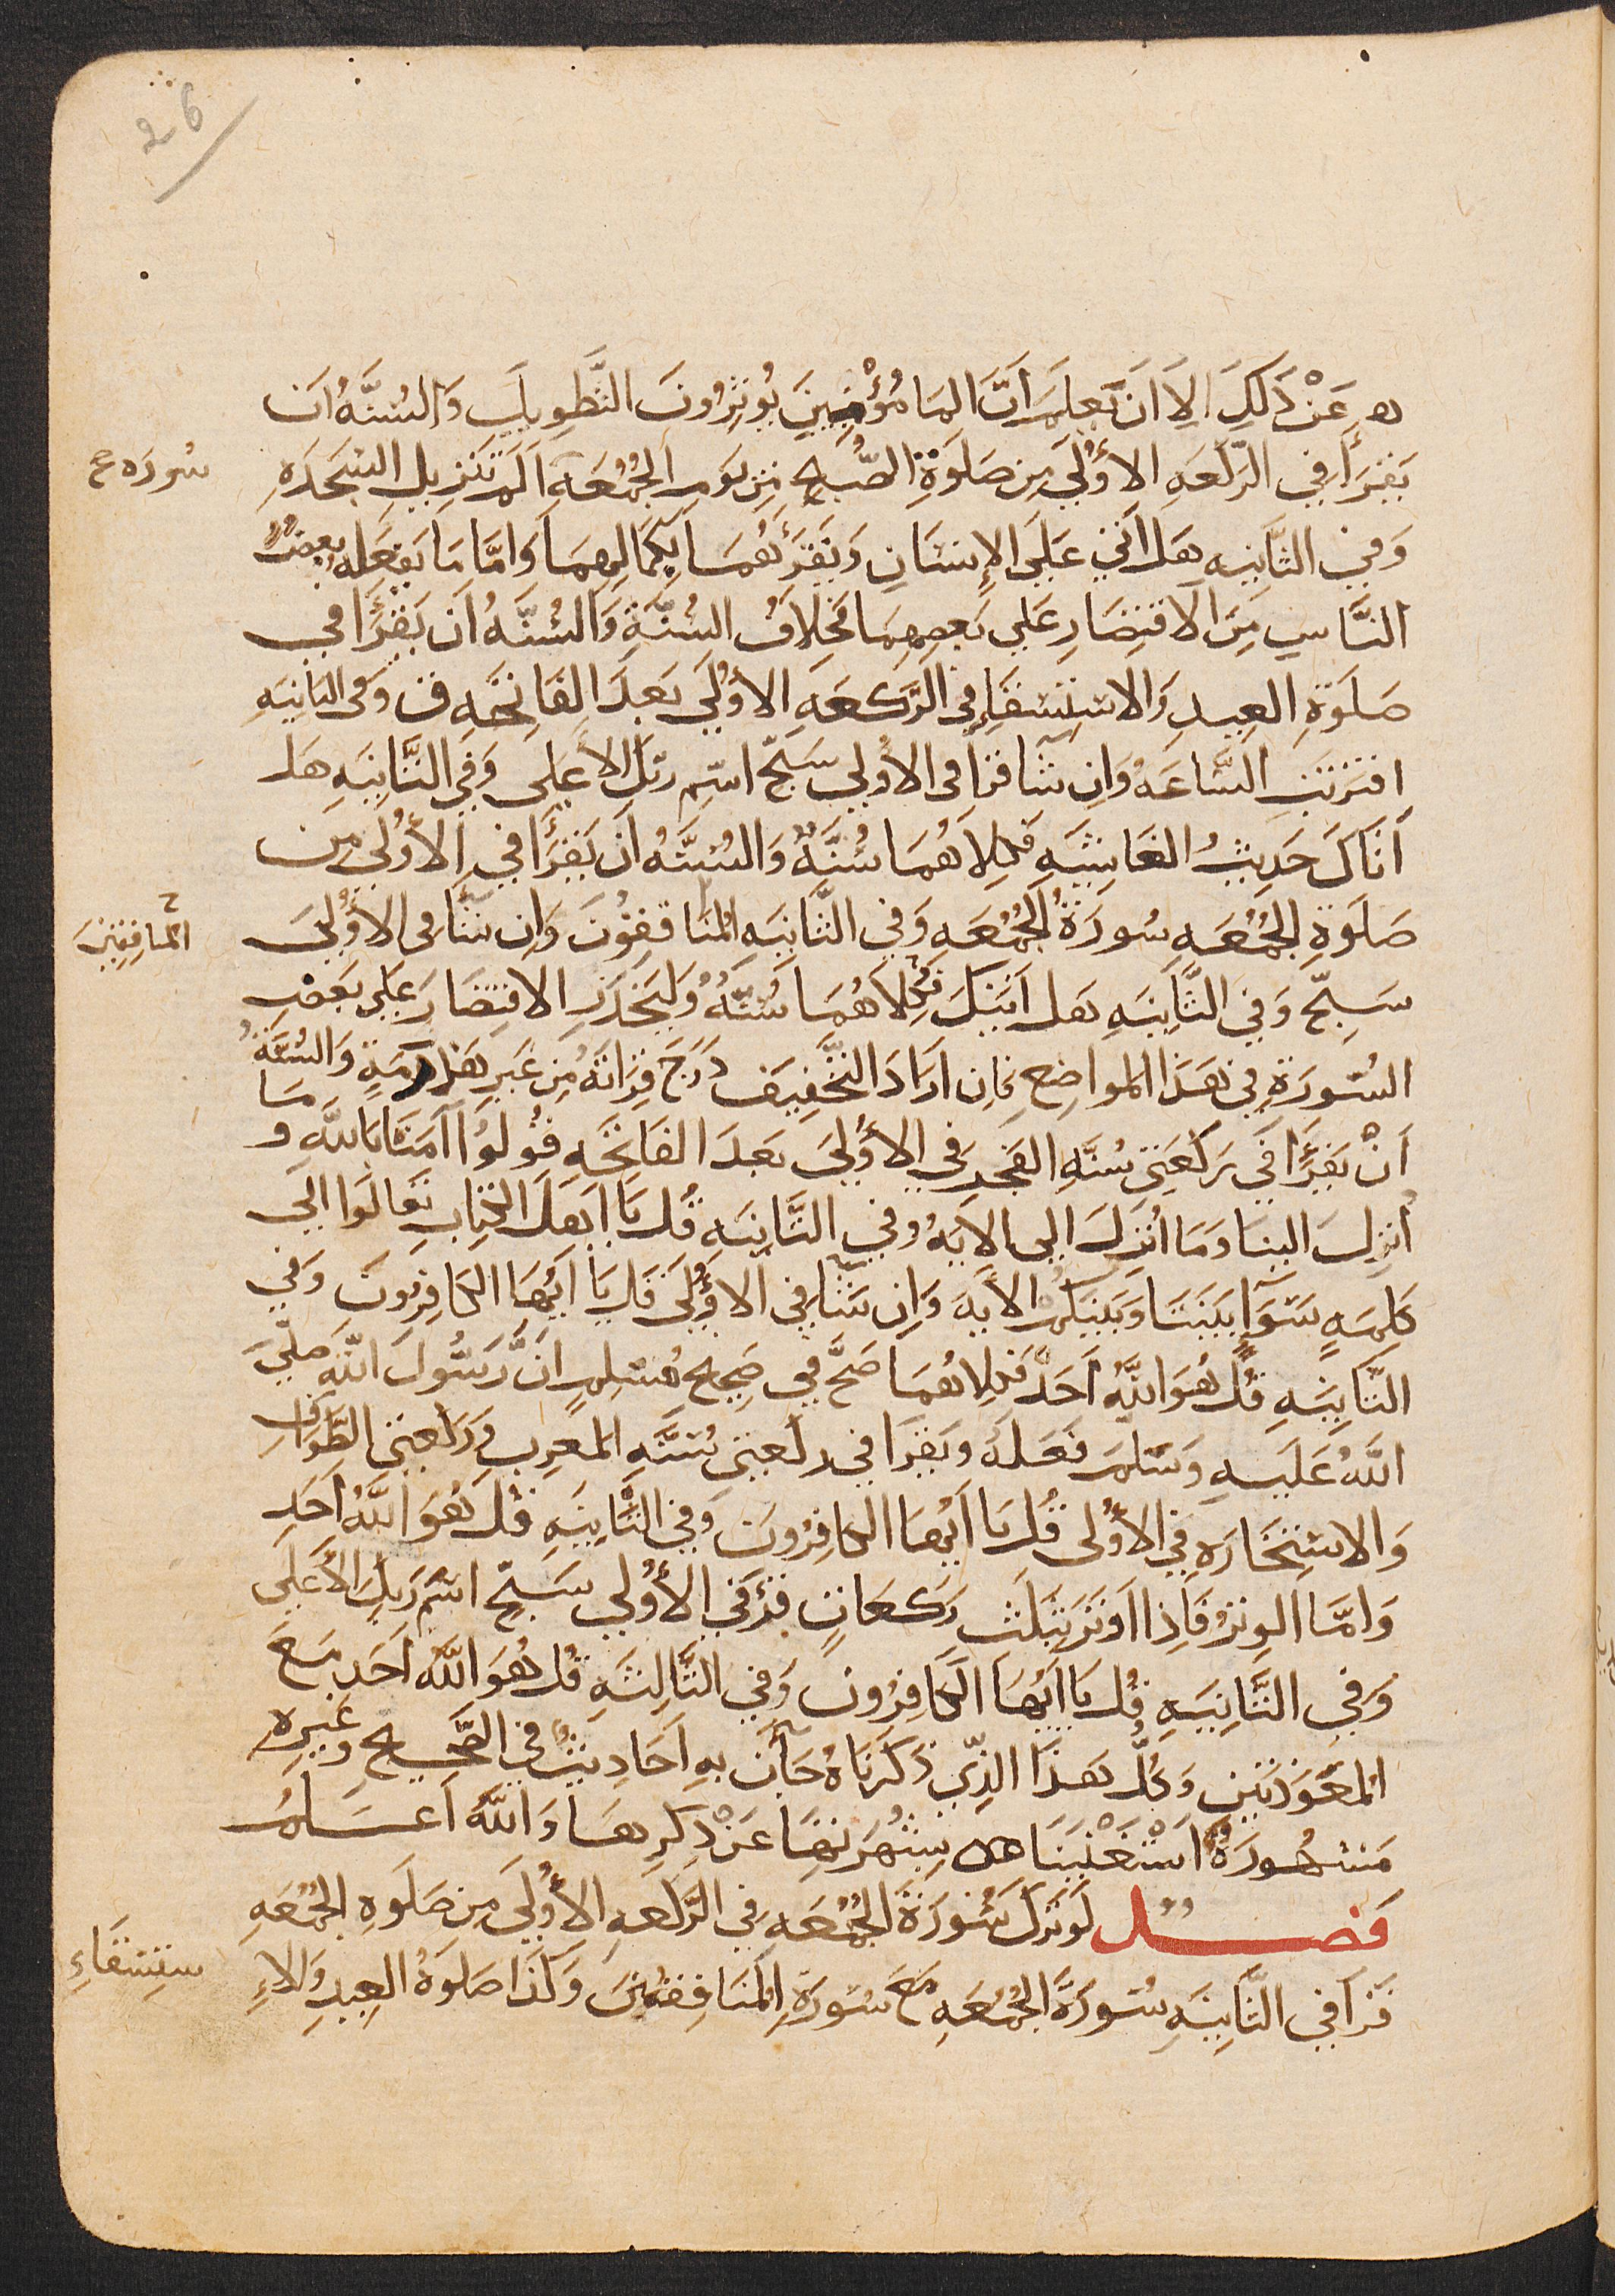 26
ه عَنْ ذَلِكَ الاَ اَن يَعلَمَ اَنَّ المَامُوْمِنِينَ يُوثِرُونَ التَّطوِيلَ وَالسُنَّهُ اَن
يَقرَأَ فِي الرَّكعَهِ الأُولَي مِن صَلَوةِ الصُّبحِ مِن يَومِ الجُمُعَهِ اَلَم تَنزِيل السَّجدَهِ
سُورَه صح
وَفِي الثَّانِيَهِ هَل اَتَي عَلَى الاِنسَانِ وَيَقرَئهُمَا بِكَمَالِهِمَا وَامَّا مَا يَفعَلهُ بَعضُ
النَّاسِ مِنَ الاقتِصَارِ عَلَي بَعضِهِمَا فَخِلَافُ السُنَّةِ وَالسُنَّهُ اَن يَقرَأَ فِي
صَلَوةِ العِيدِ وَالاستِسقَاءِ فِي الرَّكعَهِ الأُولَي بَعدَ الفَاتِحَهِ ق وَفي الثانِيَهِ
اقتَرَبَتِ السَّاعَهُ وَاِن شَا قرَا في الأُولي سَبّح اسمِ رَبّكَ الاَعلَي وَفِي الثَّانِيَهِ هَل
اَتَاكَ حَدِيثُ الغَاشِيَهِ فَكِلاَهُمَا سُنَّهٌ وَالسُنَّهُ اَن يَقرَأَ فِي الأُولَي مِن
صَلَوةِ الجُمُعَهِ سُورَةُ الجُمُعَهِ وَفي الثَّانِيَهِ المُنَاقفِقُونَ وَاِن شَآ في الأُولَيَ
المُنافِقِينَ
سَبِّح وَفِي الثَّانِيَهِ هَل اَتَيكَ فَكِلاَهُمَا سُنَّهٌ وَليَحذَرِ الاقتِصَارَ عَلَي بَعضِ
السُّورَةِ فِي هَذَا المواضِحِ فَاِن ارَادَ التَّخفِيفَ دَرَجَ قِرَاتَهُ مِن غَيرِ هَذرَمَةٍ وَالسُنَّةُ
اَنْ يَقرَأَ فِي رَكعَتِي سُنَّهِ الفَجرِ فِي الأُولَيَ بَعدَ الفَاتِحَهِ قُولُوا آمَنَّا بِاللّهِ وَمَا
اُنزِلَ الينَا وَمَا انُزِلَ اِلي الايَهُ وفي الثَّانِيَهِ قُل يَا اَهلَ الكِتَابِ تَعَالَوا اِلَي
كَلِمَهٍ سَوَآءٍ بَينَنَا وَبَينَكُم الاَيَهَ وَاِن شَآ فِي الاُولَي قُل يَا اَيُّهَا الكَافِرُونَ وَفِي
الثَّانِيَهِ قُل هُوَ اللّهُ اَحَدٌ فَكِلاَهُمَا صَحَّ فِي صَحِيحِ مُسلِمٍ اَنَّ رَسُولَ اللّهِ صَلّي
اللهُ عَلَيهِ وَسَلمَ فَعَلَهُ وَيَقرَا في ركعَتِي سُنَّهِ المَغرِبِ وَرَكعَتي الطَّوَافِ
وَالاستِخَارَهِ فِي الأُولى قُل يَا اَيُّهَا الكافِرُونَ وَفي الثَّانِيَهِ قُل هُوَ اللّهُ اَحَد
وَامَّا الوِترُ فَاِذا اَوتَرَ بِثَلَث رَكعَاتٍ قرَءَ فِي الأُولَي سَبّح اسم رَبّكَ الأَعلَي
وَفِي الثَّانِيَهِ قُل يَا اَيُّهَا الكَافِرُون وَفي الثَّالِثَهِ قُل هُوَ اللَّهُ اَحَد مَعَ
المعَّوذَتَين وَكُلُّ هَذَا الذِّي ذَكَرنَاهُ جَآت بهِ اَحَادِيثُ فِي الصَّحِيحِ وَغَيرِهِ
مَشهُورَةٌ اَستَغنَينَا بِشُهرَتِهَا عَن ذِكرِهَا وَاللّهُ اَعلَمُ
فَصل لَو تَرَكَ سُورَةَ الجُمُعَهِ فِي الرَّكعَهِ الأُولَي مِن صَلَوهِ الجُمُعَهِ
قَرَا فِي الثَّانِيَهِ سُورَةَ الجُمُعَهِ مَعَ سُورَةِ المُنَافِقِينَ وَكَذَا صَلَوةُ العِيدِ وَالاءِ
ستِسقَاءِ